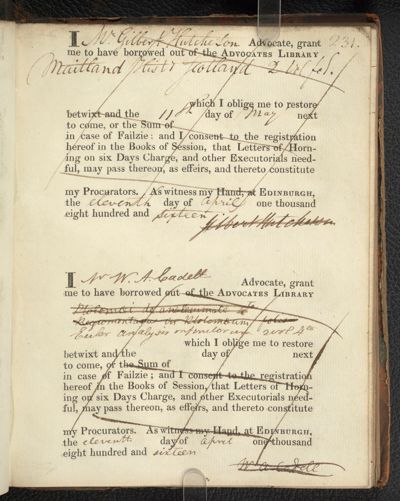 231.
I Mr Gilbert Hutcheson Advocate, grant
me to have borrowed out of the ADVOCATES LIBRARY
Maitland Scotland 2 vol fol.
which I oblige me to restore
betwixt and the 11th day of May next
to come, or the Sum of
in case of Failzie; and I consent to the registration
hereof in the Books of Session, that Letters of Horn-
ing on six Days Charge, and other Executorials need-
ful, may pass thereon, as effeirs, and thereto constitute
my Procurators. As witness my Hand, at EDINBURGH,
the eleventh day of April one thousand
eight hundred and sixteen
Gilbert Hutcheson
I Mr W. A. Cadell Advocate, grant
me to have borrowed out of the ADVOCATES LIBRARY
Euler analysis infinitorum
which I oblige me to restore
betwixt and the day of next
to come, or the Sum of
in case of Failzie; and I consent to the registration
hereof in the Books of Session, that Letters of Horn-
ing on six Days Charge, and other Executorials need-
ful, may pass thereon, as effeirs, and thereto constitute
my Procurators. As witness my Hand, at EDINBURGH,
the eleventh day of april one thousand
eight hundred and sixteen
W. A. Cadell